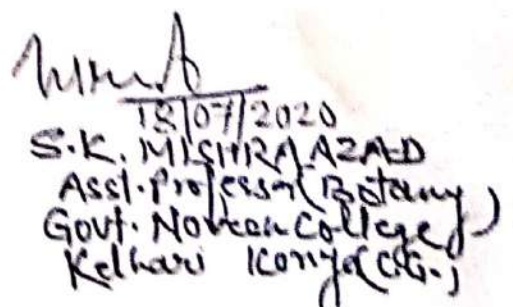 18/07/2020
S.K. MISHRA AZAD
Asst. Professor (Botany)
Govt. Naveen College
Kelhari Korya (C.G.)